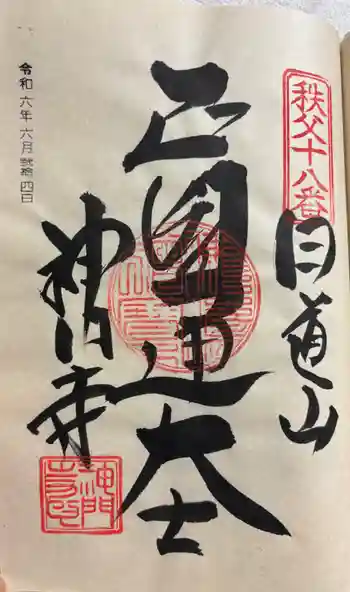 秩父十八番
白道山
正圓通大士
神門寺
令和六年六月弐拾四日
神門
寺印